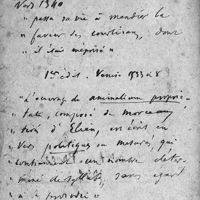 Vers 1340
"passa sa vie à mendier la
faveur des courtisans, dont
"il fut méprisé"
1re édit. Venise 1533 in 8
"L'ouvrage de animalium propri-
tate, composé de morceaux
tirés d'Elien, en écrit en
Vers politiques ou mesurés, qui
contiennent un nombre déter-
miné de syllabes, sans égard
à la prosodie"